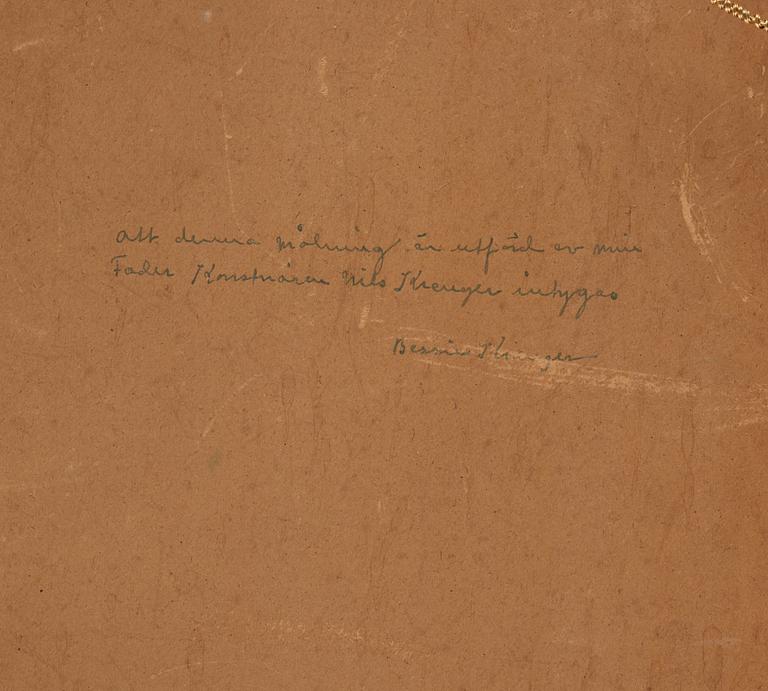 Att denna målning är utförd av min
Fader Konstnären Nils Kreuger intygas
Bessie Kreuger